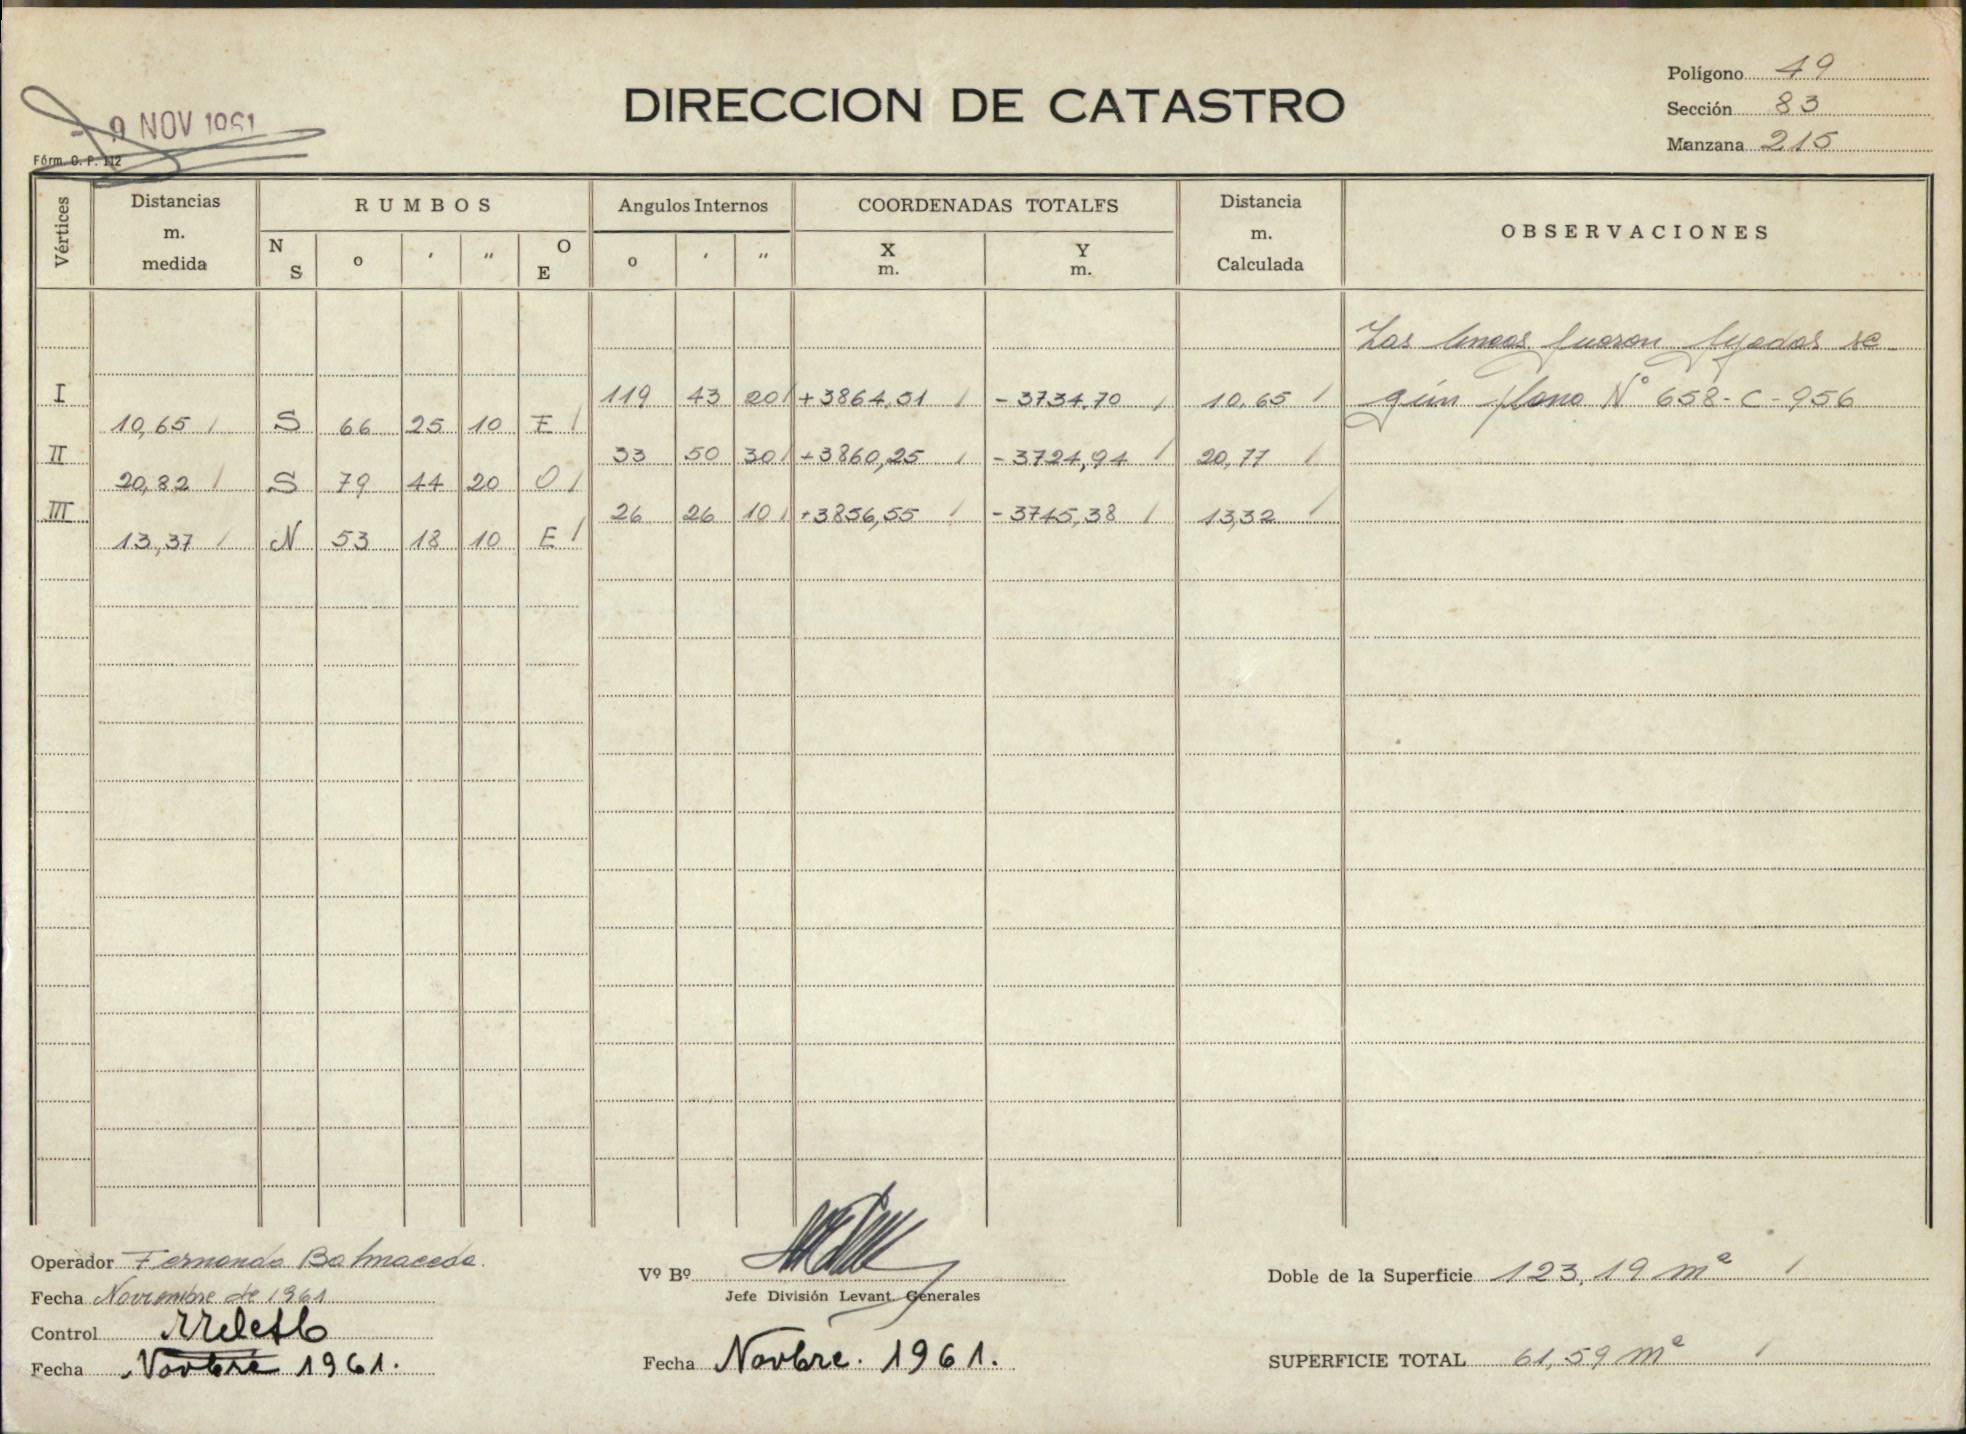 Polígono 49
DIRECCION DE CATASTRO
Sección 83
9 NOV 1961
Manzana 215
Fórm. O. P. 112
Vértices Distancias m. medida RUMBOS Angulos Internos COORDENADAS TOTALES Distancia m. Calculada OBSERVACIONES
N S o ′ ″ O E o ′ ″ X m. Y m.
Las lineas fueron fijadas se
I 119 43 20 +3864,51 -3734,70 10,65 gún plano Nº 658-C-956
10,65 S 66 25 10 E
II 33 50 30 +3860,25 -3724,94 20,77
20,82 S 79 44 20 O
III 26 26 10 +3856,55 -3745,38 13,32
13,37 N 53 18 10 E
Operador Fernando Balmaceda.
Vº Bº
Doble de la Superficie 123,19 m²
Fecha Noviembre de 1961
Jefe División Levant. Generales
Control
Fecha Novbre 1961.
Fecha Novbre. 1961.
SUPERFICIE TOTAL 61,59 m²